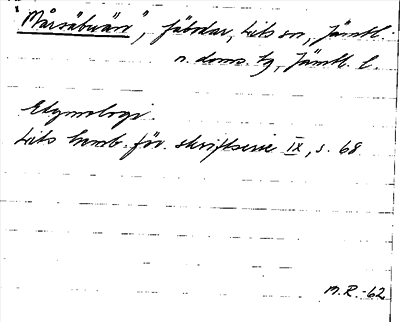 "Mårsåbuän", fäbodar, Lits sn, Jämtl.
n. doms. hg, Jämtl. l.
Etymologi.
Lits hemb. för. skriftserie IX, s. 68
M.R. -62